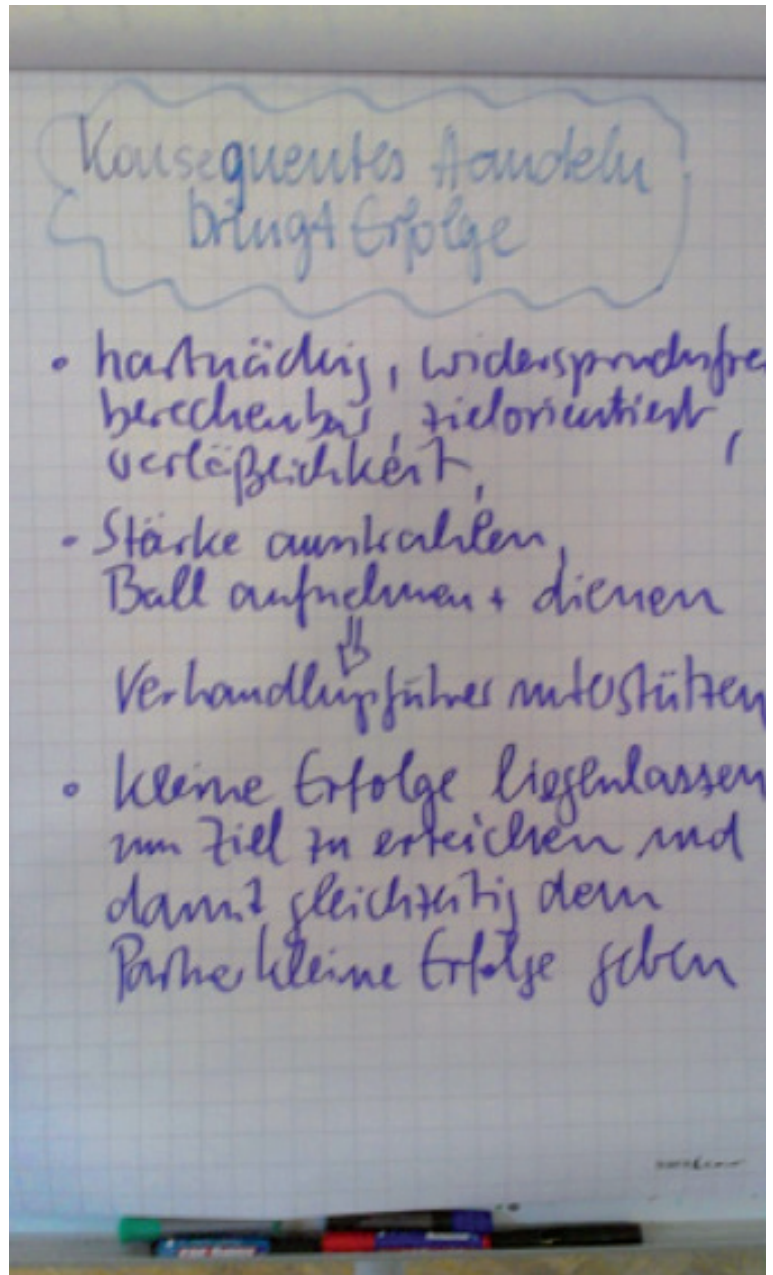 Konsequentes Handeln
bringt Erfolge
• hartnäckig, widerspruchsfre
berechenbar, zielorientiert,
verläßlichkeit,
- Stärke ausstrahlen,
Ball aufnehmen + dienen
⇓
Verhandlungsführer unterstützen
• kleine Erfolge liegenlassen
um Ziel zu erreichen und
damit gleichzeitig dem
Partner kleine Erfolge geben